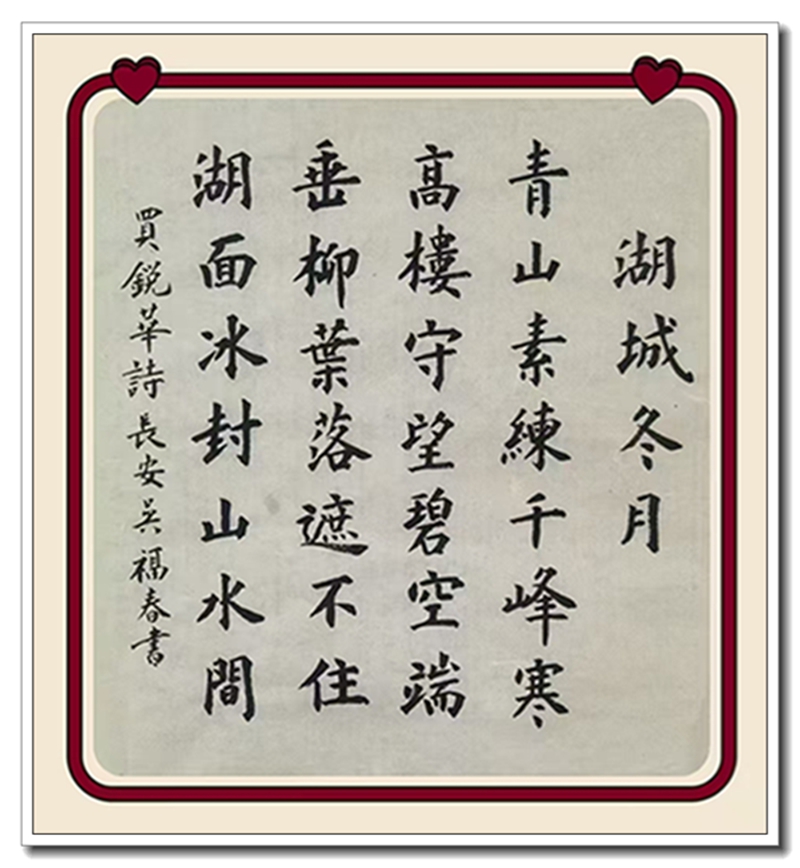 湖城冬月
青山素練千峰寒
高樓守望碧空端
垂柳葉落遮不住
湖面冰封山水間
買銳華詩長安吳福春書